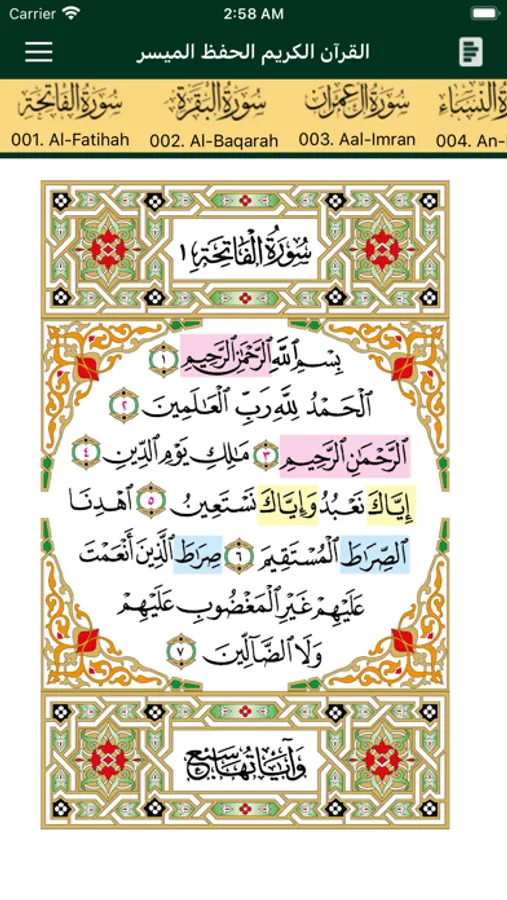 Carrier 2:58 AM
القرآن الكريم الحفظ الميسر
سُورَةُ الفَاتِحَةِ سُورَةُ البَقَرَةِ سُورَةُ آلِ عِمْرَان سُورَةُ النِّسَاء
001. Al-Fatihah 002. Al-Baqarah 003. Aal-Imran 004. An-
سُورَةُ الْفَاتِحَةِ ١
بِسْمِ ٱللَّهِ ٱلرَّحْمَٰنِ ٱلرَّحِيمِ ١
ٱلْحَمْدُ لِلَّهِ رَبِّ ٱلْعَٰلَمِينَ ٢
ٱلرَّحْمَٰنِ ٱلرَّحِيمِ ٣ مَٰلِكِ يَوْمِ ٱلدِّينِ ٤
إِيَّاكَ نَعْبُدُ وَإِيَّاكَ نَسْتَعِينُ ٥ ٱهْدِنَا
ٱلصِّرَٰطَ ٱلْمُسْتَقِيمَ ٦ صِرَٰطَ ٱلَّذِينَ أَنْعَمْتَ
عَلَيْهِمْ غَيْرِ ٱلْمَغْضُوبِ عَلَيْهِمْ
وَلَا ٱلضَّآلِّينَ ٧
وَآيَاتُهَا سَبْعٌ